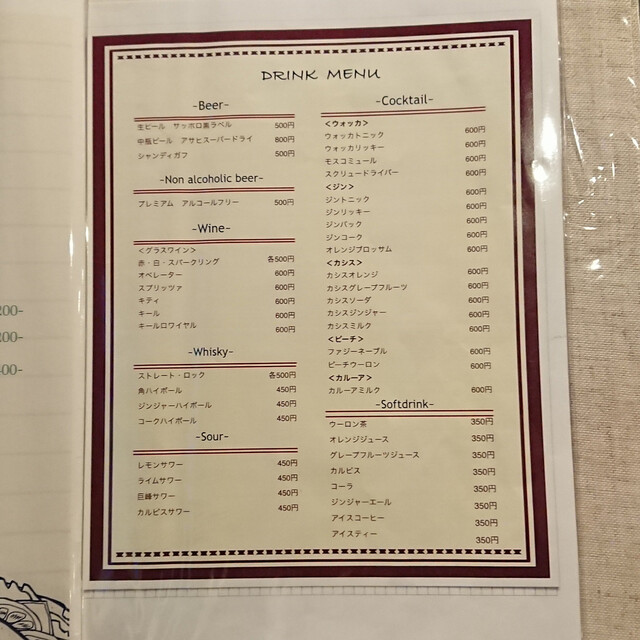 DRINK MENU
-Beer-
生ビール サッポロ黒ラベル 500円
中瓶ビール アサヒスーパードライ 800円
シャンディガフ 500円
-Non alcoholic beer-
プレミアム アルコールフリー 500円
-Wine-
<グラスワイン>
赤・白・スパークリング 各500円
オペレーター 600円
スプリッツァ 600円
キティ 600円
キール 600円
キールロワイヤル 600円
-Whisky-
ストレート・ロック 各500円
角ハイボール 450円
ジンジャーハイボール 450円
コークハイボール 450円
-Sour-
レモンサワー 450円
ライムサワー 450円
巨峰サワー 450円
カルピスサワー 450円
-Cocktail-
<ウォッカ>
ウォッカトニック 600円
ウォッカリッキー 600円
モスコミュール 600円
スクリュードライバー 600円
<ジン>
ジントニック 600円
ジンリッキー 600円
ジンバック 600円
ジンコーク 600円
オレンジブロッサム 600円
<カシス>
カシスオレンジ 600円
カシスグレープフルーツ 600円
カシスソーダ 600円
カシスジンジャー 600円
カシスミルク 600円
<ピーチ>
ファジーネーブル 600円
ピーチウーロン 600円
<カルーア>
カルーアミルク 600円
-Softdrink-
ウーロン茶 350円
オレンジジュース 350円
グレープフルーツジュース 350円
カルピス 350円
コーラ 350円
ジンジャーエール 350円
アイスコーヒー 350円
アイスティー 350円